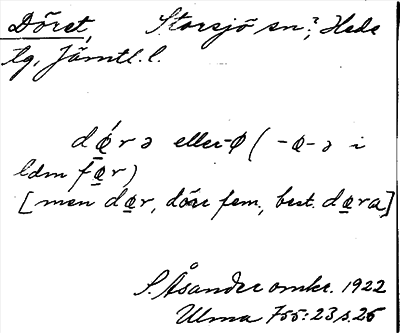 Döret, Storsjö sn?, Hede
tg, Jämtl. l.
dǿ̱rə eller -ø (-ø-ə i
ldm fø̱̄r)
[men dø̱r, dörr fem., best. dø̱ra]
S. Åsander omkr. 1922
Ulma 755:23 s. 25